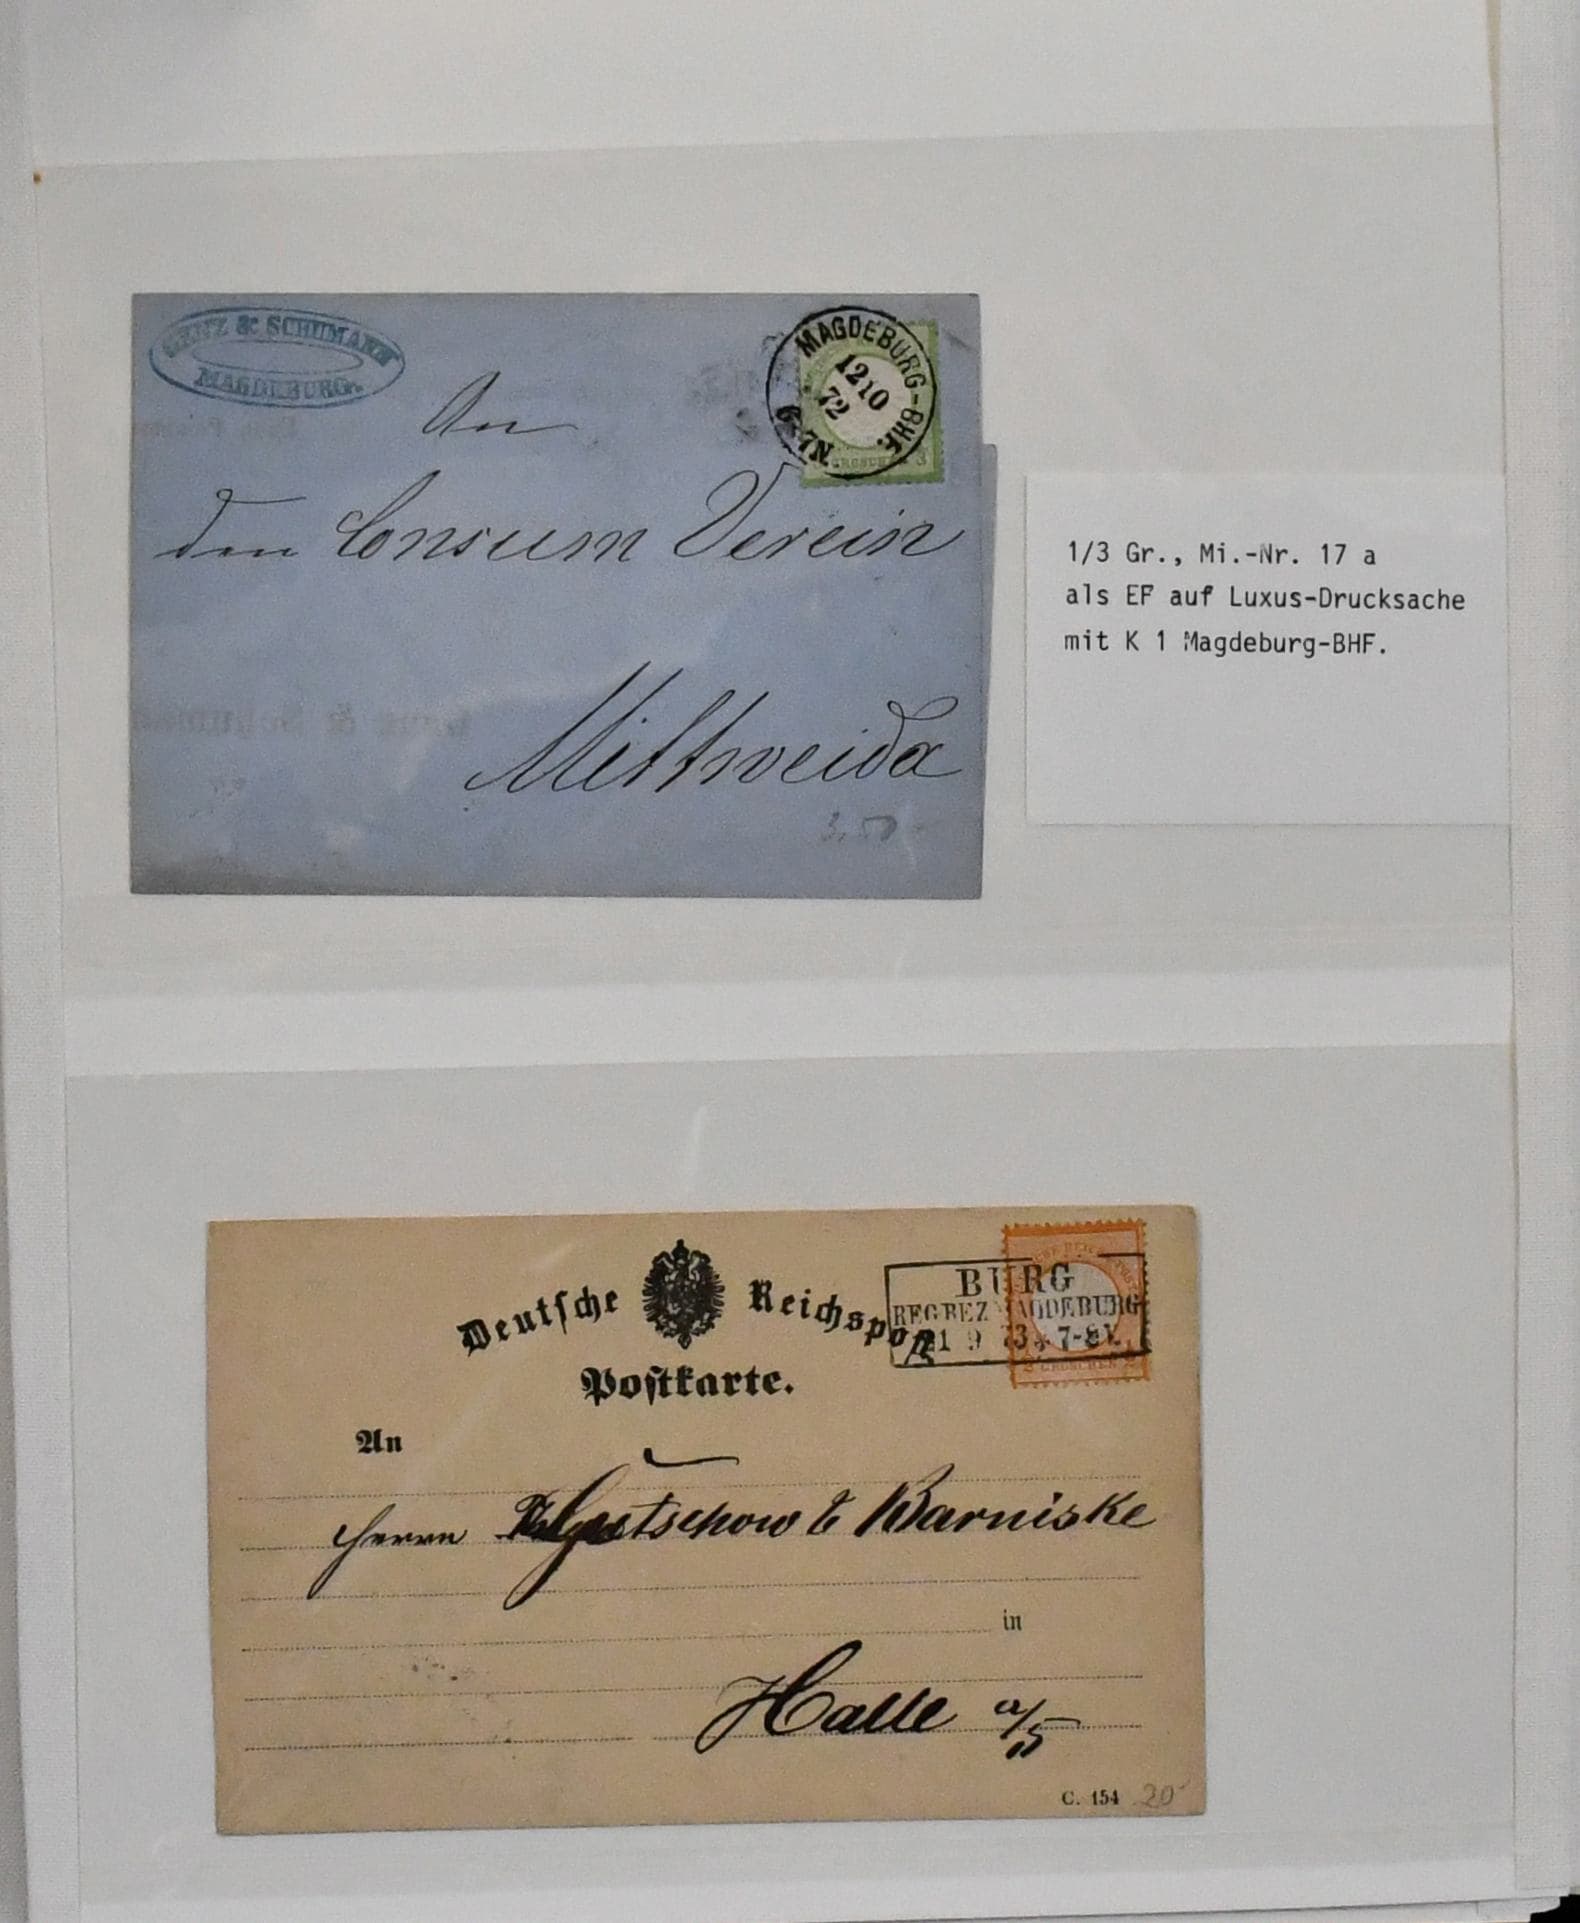 & SCHUMANN
MAGDEBURG.
MAGDEBURG-BHF.
12 10
72
6-7N.
GROSCHEN 3
An
den Consum Verein
Mittweida
3,50
1/3 Gr., Mi.-Nr. 17 a
als EF auf Luxus-Drucksache
mit K 1 Magdeburg-BHF.
Deutsche Reichspost
Postkarte.
BURG
REG BEZ MAGDEBURG
21 9 73 * 7-8V.
GROSCHEN
An
Herrn Gutschow & Barniske
in
Halle a/S
C. 154 20